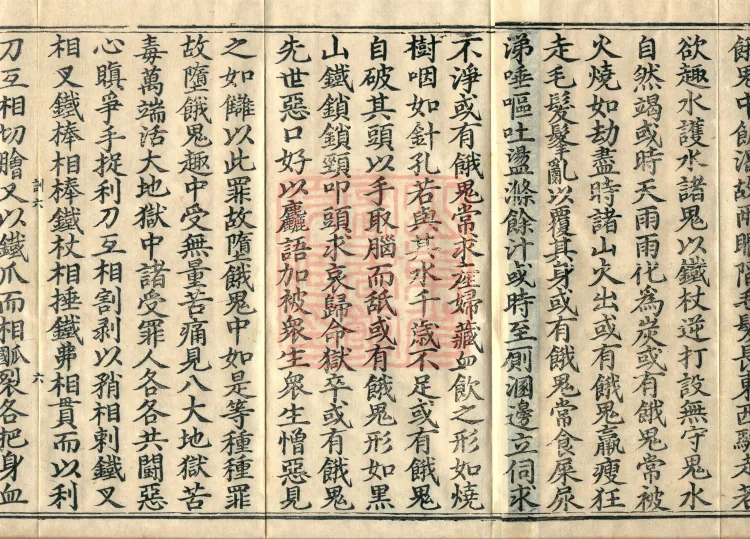 中飢渴故兩眼陷毛髮長東西馳走若
欲趣水護水諸鬼以鐵杖逆打設無守鬼水
自然竭或時天雨雨化為炭或有餓鬼常被
火燒如劫盡時諸山火出或有餓鬼羸瘦狂
走毛髮鬔亂以覆其身或有餓鬼常食屎尿
涕唾嘔吐盪滌餘汁或時至厠溷邊立伺求
不淨或有餓鬼常求產婦藏血飲之形如燒
樹咽如針孔若與其水千歲不足或有餓鬼
自破其頭以手取腦而舐或有餓鬼形如黑
山鐵鎖鎖頸叩頭求哀歸命獄卒或有餓鬼
先世惡口好以麤語加被衆生衆生憎惡見
之如讎以此罪故墮餓鬼中如是等種種罪
故墮餓鬼趣中受無量苦痛見八大地獄苦
毒萬端活大地獄中諸受罪人各各共鬭惡
心瞋爭手捉利刀互相割剥以矟相刺鐵叉
相叉鐵棒相棒鐵杖相捶鐵弗相貫而以利
訓六 六
刀互相切膾又以鐵爪而相裂各把身血